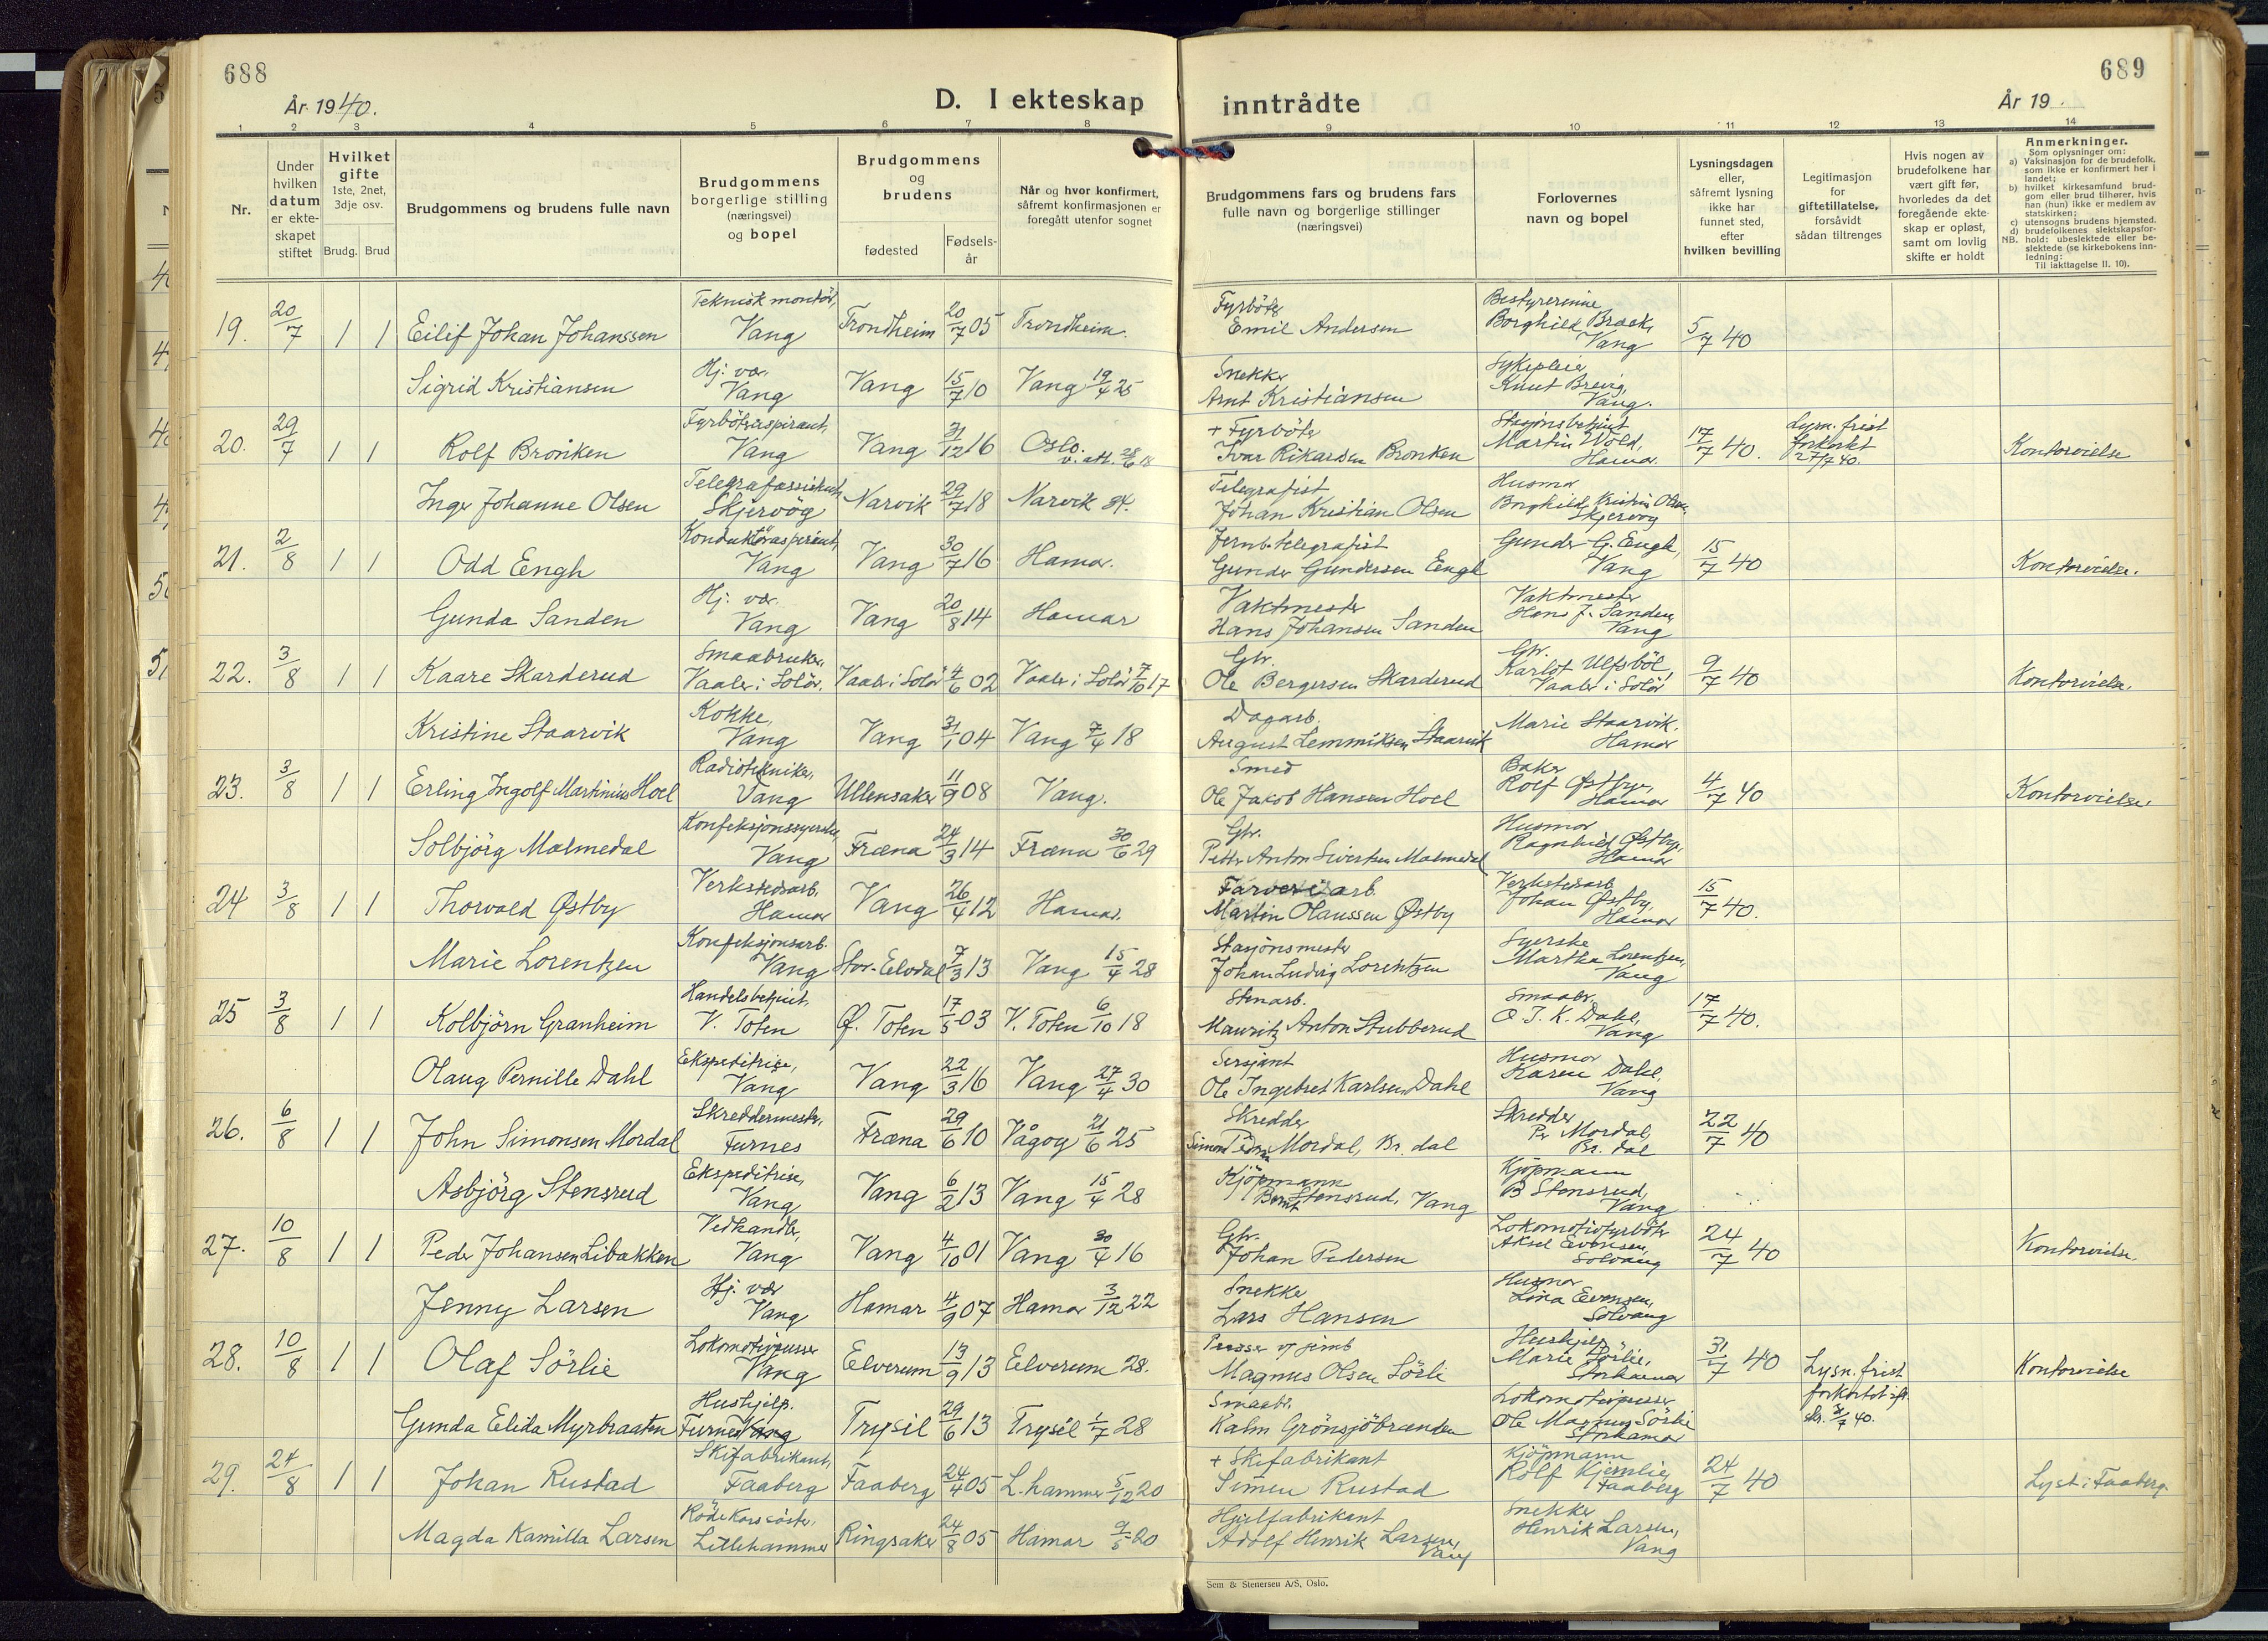 688
År 1940.
D. I ekteskap
inntrådte
År 19
689
1 2 3 4 5 6 7 8 9 10 11 12 13 14
Nr.
Under hvilken datum er ekteskapet stiftet
Hvilket gifte
1ste, 2net, 3dje osv.
Brudg. Brud
Brudgommens og brudens fulle navn
Brudgommens borgerlige stilling (næringsvei) og bopel
Brudgommens og brudens
fødested
Fødsels-år
Når og hvor konfirmert, såfremt konfirmasjonen er foregått utenfor sognet
Brudgommens fars og brudens fars fulle navn og borgerlige stillinger (næringsvei)
Forlovernes navn og bopel
Lysningsdagen eller, såfremt lysning ikke har funnet sted, efter hvilken bevilling
Legitimasjon for giftetillatelse, forsåvidt sådan tiltrenges
Hvis nogen av brudefolkene har vært gift før, hvorledes da det foregående ekteskap er opløst, samt om lovlig skifte er holdt
Anmerkninger.
Som oplysninger om:
a) Vaksinasjon for de brudefolk, som ikke er konfirmert her i landet;
b) hvilket kirkesamfund brudgom eller brud tilhører, hvis han (hun) ikke er medlem av statskirken;
c) utensogns brudens hjemsted.
d) brudefolkenes slektskapsforhold: ubeslektede eller beslektede (se kirkebokens innledning:
NB. Til iakttagelse II. 10).
19. 20/7 1 1 Eilif Johan Johanssen Teknisk montør, Vang Trondheim 20/7 05 Trondheim. Fyrbøter Emil Andersen Bestyrerinne Borghild Braak, Vang 5/7 40
Sigrid Kristiansen Hj: vær. Vang Vang 15/7 10 Vang 19/4 25 Snekker Arnt Kristiansen Sykepleier Knut Brevig, Vang.
20. 29/7 1 1 Rolf Bronken Fyrbøteraspirant, Vang Vang 31/12 16 Oslo. v. att. 28/6 18 + Fyrbøter Ivar Rikardsen Bronken Stasjonsbetjent Martin Wold, Hamar. 17/7 40. Lysn. frist forkortet 27/7 40. Kontorvielse
Inger Johanne Olsen Telegrafassistent, Skjervøy Narvik 29/7 18 Narvik 34. Telegrafist Johan Kristian Olsen Husmor Borghild Kristin Olsen, Skjervøy
21. 2/8 1 1 Odd Engh Konduktøraspirant, Vang Vang 30/7 16 Hamar. Jernb.telegrafist Gunder Gundersen Engh Gunder G. Engh, Vang 15/7 40 Kontorvielse.
Gunda Sanden Hj: vær. Vang Vang 20/8 14 Hamar Vaktmester Hans Johansen Sanden Vaktmester Hans J. Sanden, Vang
22. 3/8 1 1 Kaare Skarderud Smaabruker, Vaaler i Solør. Vaaler i Solør 4/6 02 Vaaler i Solør 7/10 17 Gbr. Ole Bergersen Skarderud Gbr. Karlot Ulfsbøl, Vaaler i Solør 9/7 40 Kontorvielse.
Kristine Staarvik Kokke, Vang Vang 31/1 04 Vang 7/4 18 Dagarb. August Lemmiksen Staarvik Marie Staarvik, Hamar
23. 3/8 1 1 Erling Ingolf Martinius Hoel Radiotekniker, Vang Ullensaker 11/9 08 Vang. Smed Ole Jakob Hansen Hoel Baker Rolf Østbye, Hamar 4/7 40 Kontorvielse.
Solbjörg Malmedal Konfeksjonssyerske, Vang Fræna 24/3 14 Fræna 30/6 29 Gbr. Petter Anton Sivertsen Malmedal Husmor Ragnhild Østbye, Hamar
24 3/8 1 1 Thorvald Østby Verkstedsarb. Hamar Vang 26/4 12 Hamar. Farveriarb. Martin Olaussen Østby Verkstedsarb Johan Østby, Hamar 15/7 40.
Marie Lorentzen Konfeksjonsarb. Vang Stor-Elvdal 7/3 13 Vang 15/4 28 Stasjonsmester Johan Ludvig Lorentzen Syerske Martha Lorentzen, Vang
25 3/8 1 1 Kolbjörn Granheim Handelsbetjent, V. Toten Ø. Toten 17/5 03 V. Toten 6/10 18 Stenarb. Mauritz Anton Stubberud Smaabr. O. I. K. Dahl, Vang 17/7 40.
Olaug Pernille Dahl Ekspeditrise, Vang Vang 22/3 16 Vang 27/4 30 Sersjant Ole Ingebret Karlsen Dahl Husmor Karen Dahl, Vang
26. 6/8 1 1 John Simonsen Mordal Skreddermester, Furnes Fræna 29/6 10 Vågøy 21/6 25 Skredder Simon Mordal, Br. dal Skredder Per Mordal, Br. dal 22/7 40
Asbjörg Stensrud Ekspeditrise, Vang Vang 6/2 13 Vang 15/4 28 Kjöpmann Bernt Stensrud, Vang Kjöpmann B Stensrud, Vang
27. 10/8 1 1 Peder Johansen Libakken Vedhandler, Vang Vang 4/10 01 Vang 30/4 16 Gbr. Johan Pedersen Lokomotivfyrböter Aksel Evensen, Solvang 24/7 40 Kontorvielse.
Jenny Larsen Hj. vær Vang Hamar 4/9 07 Hamar 3/12 22 Snekker Lars Hansen Husmor Lina Evensen, Solvang
28. 10/8 1 1 Olaf Sörlie Lokomotivpusser Vang Elverum 13/9 13 Elverum 28. Pusser v. jernb Magnus Olsen Sörli Hushjelp Marie Sörlie, Storhamar 31/7 40 Lysn. frist forkortet Kontorvielse
Gunda Elida Myrbraaten Hushjelp. Furnes Vang Trysil 29/6 13 Trysil 1/7 28 Smaabr. Kalm Grönsjöbrænden Lokomotivpusser Ole Magnus Sörlie Storhamar skr. 31/7 40.
29. 24/8 1 1 Johan Rustad Skifabrikant, Faaberg Faaberg 24/4 05 L.hammer 5/12 20 + Skifabrikant Simen Rustad Kjöpmann Rolf Kjernlie, Faaberg 24/7 40 Lyst i Faaberg.
Magda Kamilla Larsen Röde Kors söster, Lillehammer Ringsaker 24/8 05 Hamar 9/5 20 Hjulfabrikant Adolf Henrik Larsen, Vang Snekker Henrik Larsen, Vang
Sem & Stenersen A/S, Oslo.